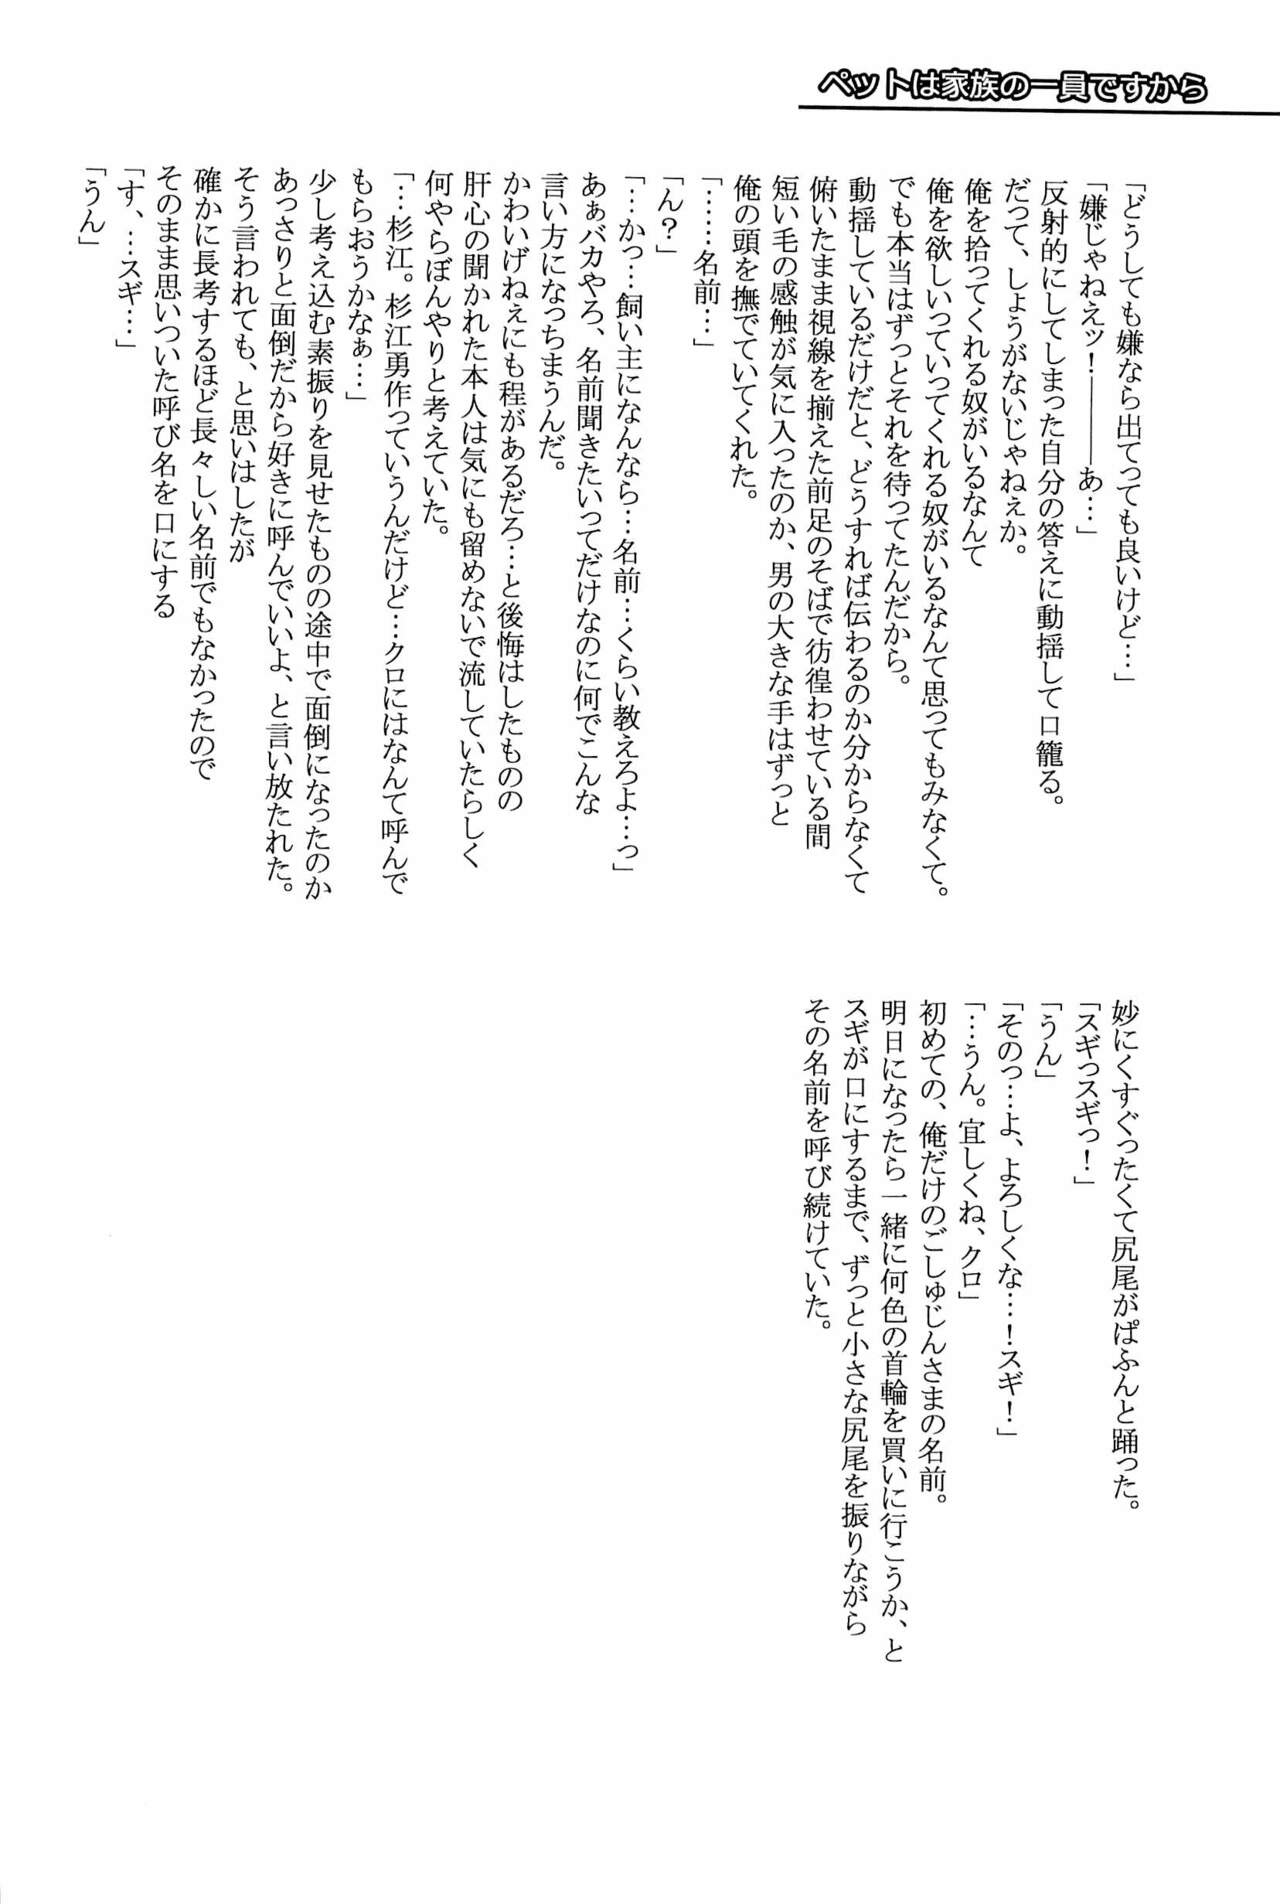 ペットは家族の一員ですから
「どうしても嫌なら出てっても良いけど…」
「嫌じゃねえッ！――あ…」
反射的にしてしまった自分の答えに動揺して口籠る。
だって、しょうがないじゃねぇか。
俺を拾ってくれる奴がいるなんて
俺を欲しいっていってくれる奴がいるなんて思ってもみなくて。
でも本当はずっとそれを待ってたんだから。
動揺しているだけだと、どうすれば伝わるのか分からなくて
俯いたまま視線を揃えた前足のそばで彷徨わせている間
短い毛の感触が気に入ったのか、男の大きな手はずっと
俺の頭を撫でていてくれた。
「……名前…」
「ん？」
「…かっ…飼い主になんなら…名前…くらい教えろよ…っ」
あぁバカやろ、名前聞きたいってだけなのに何でこんな
言い方になっちまうんだ。
かわいげねぇにも程があるだろ…と後悔はしたものの
肝心の聞かれた本人は気にも留めないで流していたらしく
何やらぼんやりと考えていた。
「…杉江。杉江勇作っていうんだけど…クロにはなんて呼んで
もらおうかなぁ…」
少し考え込む素振りを見せたものの途中で面倒になったのか
あっさりと面倒だから好きに呼んでいいよ、と言い放たれた。
そう言われても、と思いはしたが
確かに長考するほど長々しい名前でもなかったので
そのまま思いついた呼び名を口にする
「す、…スギ…」
「うん」
妙にくすぐったくて尻尾がぱふんと踊った。
「スギっスギっ！」
「うん」
「そのっ…よ、よろしくな…！スギ！」
「…うん。宜しくね、クロ」
初めての、俺だけのごしゅじんさまの名前。
明日になったら一緒に何色の首輪を買いに行こうか、と
スギが口にするまで、ずっと小さな尻尾を振りながら
その名前を呼び続けていた。